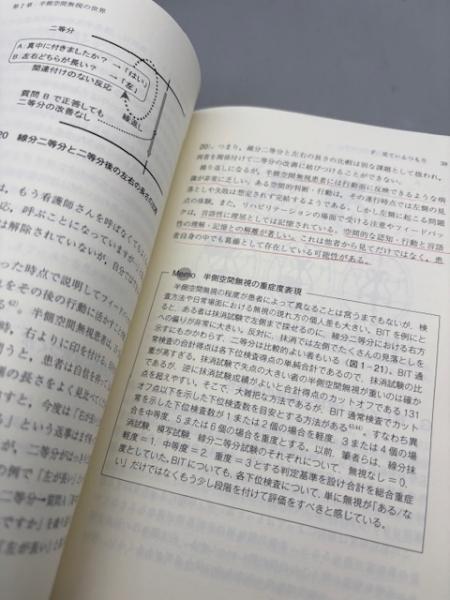 第7章 半側空間無視の世界
二等分
A:真中に付きましたか? →「はい」
B:左右どちらが長い? →「左」
関連付けのない反応
質問Bで正答しても
二等分の改善なし
繰返し
20 線分二等分と二等分後の左右の長さの比較
は、もう看護師さんを呼ばなくて
応、呼ぶことになっていますが
は解除されていないが、自分では
った時点で説明してフィード
をその後の行動に活かすこと
半側空間無視患者は、
時、右よりに印を付ける。
問うと、患者は自信を持って
の長さをよく見比べて
すと、今度は「右が
る」という返事はまず
が、二等分がはっき
の例で「左が長い」と
等分→質問
ですか」を
「左が長い」
39
20)。つまり、線分二等分と左右の長さの比較は別な課題として扱われ、
両者を関係付けて二等分の改善に結びつけることができない。
繰り返しになるが、半側空間無視患者には行動前に反映できるような病
識が非常に乏しい。ある空間的判断・行動は、その遂行時点では左側の見
落としや失敗は想定されず完結するようである。しかし左側に起こる問題
点の体験、また、リハビリテーションの場面で受ける注意やフィードバッ
クは、言語性に理解としては記憶されている。空間的な認知・行動と言語
性の理解・記憶との解離が著しい。これは他者から見てだけではなく、患
者自身の中でも乖離として存在している可能性がある。
Memo 半側空間無視の重症度表現
半側空間無視の程度が患者によって異なることは言うまでもないが、検
査方法や日常場面における無視の現れ方の個人差も大きい。BITを例にと
ると、ある者は抹消試験で左側まで探せるのに、線分二等分における右方
への偏りが非常に大きい。反対に、抹消では左側でたくさんの見落としを
示すにもかかわらず、二等分は比較的よい者もいる(図1-21)。BIT通
常検査の合計得点は各下位検査得点の単純合計であるので、抹消試験の比
重が高すぎる。抹消試験で失点の大きい者の半側空間無視が重いのは確か
であるが、逆に抹消試験成績がよいと合計得点のカットオフである131
点を超えやすい。そこで、大雑把な方法であるが、BIT通常検査でカット
オフ点以下を示した下位検査数を目安とする方法がある。すなわち異
常を示した下位検査数が1または2個の場合を軽度、3または4個の場
合を中等度、5または6個の場合を重度とする。以前、筆者らは、線分抹
消試験、模写試験、線分二等分試験のそれぞれについて、無視なし=0、
軽度=1、中等度=2、重度=3とする判定基準を設け合計を総合重症
度としていた。BITについても、各下位検査について、単に無視が「ある/な
い」だけではなくもう少し段階を付けて評価をすべきと感じている。